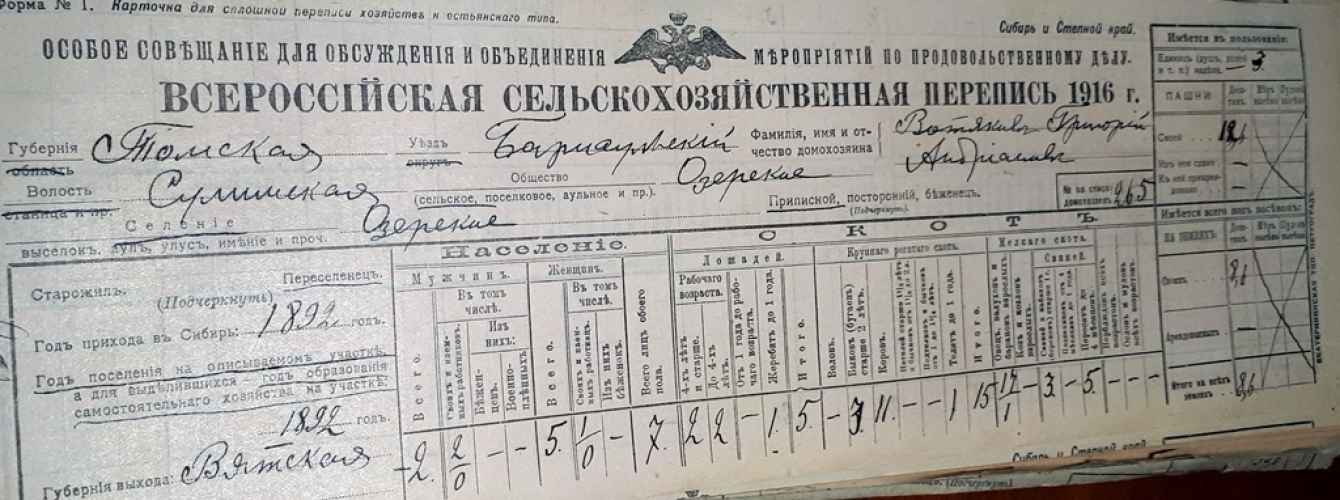 Форма № 1. Карточка для сплошной переписи хозяйствъ крестьянскаго типа.
Сибирь и Степной край.
ОСОБОЕ СОВѢЩАНІЕ ДЛЯ ОБСУЖДЕНІЯ И ОБЪЕДИНЕНІЯ МѢРОПРІЯТІЙ ПО ПРОДОВОЛЬСТВЕННОМУ ДѢЛУ.
ВСЕРОССІЙСКАЯ СЕЛЬСКОХОЗЯЙСТВЕННАЯ ПЕРЕПИСЬ 1916 г.
Губернія Томская Уѣздъ Барнаульскій Фамилія, имя и от- Вотяковъ Григорій
область округъ чество домохозяина
Волость Сулимская Общество Озерское
станица и пр. (сельское, поселковое, аульное и пр.). Приписной, посторонній, бѣженецъ.
(Подчеркнуть).
№ по списку домохозяевъ 265
Селеніе Озерское
выселокъ, аулъ, улусъ, имѣніе и проч.
Старожилъ. Переселенецъ.
(Подчеркнуть)
Годъ прихода въ Сибирь: 1892 годъ.
Годъ поселенія на описываемомъ участкѣ,
а для выдѣлившихся — годъ образованія
самостоятельнаго хозяйства на участкѣ:
1892 годъ.
Губернія выхода: Вятская
Населеніе.
Мужчинъ. Женщинъ.
Всего.
Въ томъ числѣ.
Своихъ и наемныхъ работниковъ.
Изъ нихъ:
Бѣженцевъ.
Военноплѣнныхъ.
Всего.
Въ томъ числѣ.
Своихъ и наемныхъ работницъ.
Изъ нихъ бѣженокъ.
Всего лицъ обоего пола.
СКОТЪ.
Лошадей.
Рабочаго возраста.
4-хъ лѣтъ и старше.
До 4-хъ лѣтъ.
Отъ 1 года до рабочаго возраста.
Жеребятъ до 1 года.
Итого.
Крупнаго рогатаго скота.
Воловъ.
Быковъ (бугаевъ) старше 2 лѣтъ.
Коровъ.
Телятъ до 1 года.
Итого.
Мелкаго скота.
Свиней.
2 2/0 — — 5. 1/0 — 7. 2 2 — 1. 5. — 3. 11. — — 1 15 12/1 — 3 — 5. — —
Имѣется въ пользованіи:
3.
ПАШНИ
Своей
Имѣется всего подъ посѣвомъ:
НА ЗЕМЛЯХЪ
Арендованныхъ
Итого на всѣхъ земляхъ 8,6
Сибирь и Степной край.
(Подчеркнуть).